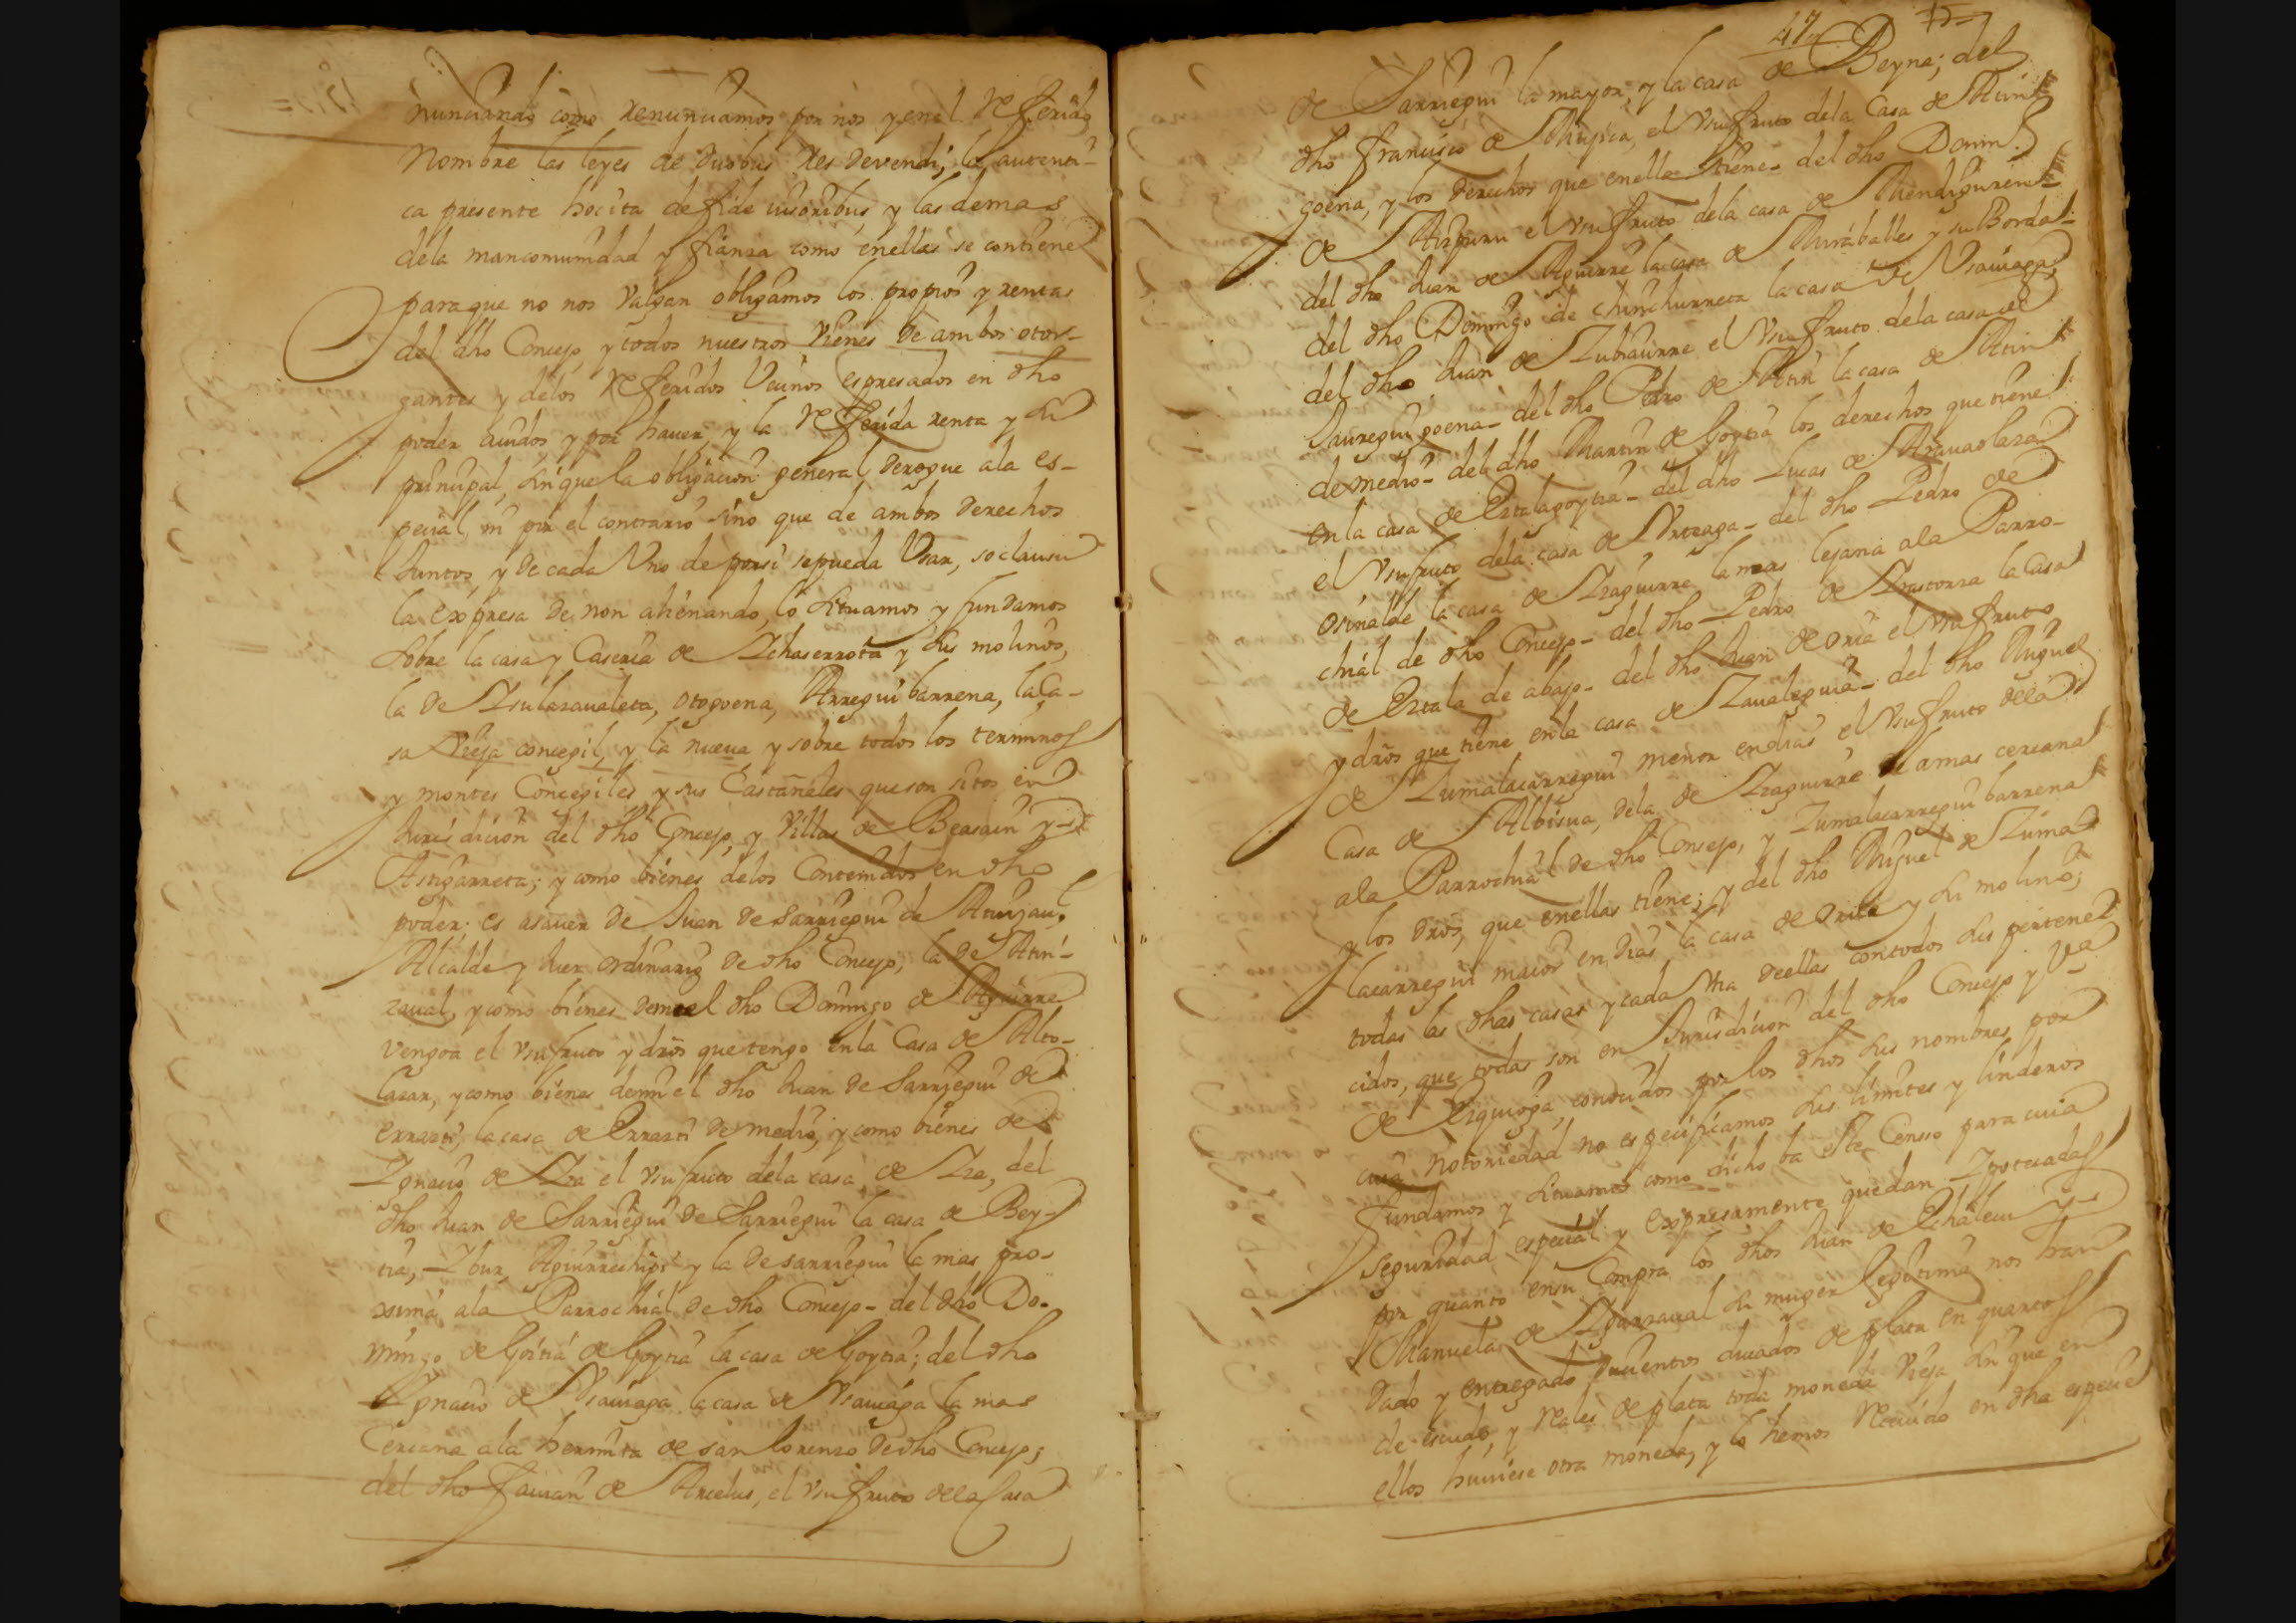 nunciando como renunciamos por nos y en el referido
nombre las leyes de duobus res devendi, la autenti-
ca presente hocita de fide iusoribus y las demas
dela mancomunidad y fianza como enellas se contiene
para que no nos valgan obligamos los propios y rentas
del dho Concejo y todos nuestros vienes de ambos otor-
gantes y delos referidos Vecinos espresados en dho
poder auidos y por hauer, y la referida renta y su
principal, sin que la obligacion general derogue ala es-
pecial, ni por el contrario sino que de ambos derechos
Juntos, y de cada Vno de porsi sepueda Vsar, so clausu
la expresa de non alienando, lo situamos y fundamos
sobre la casa y Caseria de Ichaserrota y sus molinos,
la de Isulazaualeta, otogoena, Arregui barrena, la Ca-
sa Vieja concegil, y la nueua y sobre todos los terminos
y montes Concegiles y sus Castañales que son sitos en
Jurisdicion del dho Concejo, y Villas de Beasain y
Astigarreta; y como bienes delos Contenidos en dho
poder; es asauer de Juan de Sarriegui de
Alcalde y Juez ordinario de dho Concejo, la de Atin-
zaual, y como bienes demi el dho Domingo de Aguirre
Vengoa el vsufructo y dros que tengo en la Casa de Alto-
lazar, y como bienes demi el dho Juan de Sarriegui de
Errazti, la casa de Errazti de medio, y como bienes de
Ignacio de Iza el vsufructo dela casa de Iza, del
dho Juan de Sarriegui de Sarriegui la casa de Bey-
tia, Ibur, Aguirrechipi y la de sarriegui la mas pro-
xsima ala Parrochial de dho Concejo - del dho Do-
mingo de Goitia de Goytia la casa de Goytia; del dho
Ignacio de Vsauiaga la casa de Vsauiaga la mas
Cercana ala hermita de san Lorenzo de dho Concejo;
del dho de Arcelus, el vsufructo dela Casa
47
de Sarriegui la mayor y la casa de Beyna; del
dho francisco de Mugica, el vsufructo dela Casa de Atin
goena, y los derechos que enella tiene - del dho Domin.
de Aizpuru el vsufructo dela casa de Mendiguren
del dho Juan de Aguirre la casa de Miraballes y su Borda
del dho Domingo de chunchurreta la casa de Vsauiaga,
del dho Juan de Zubiaurre el Vsufructo dela casa de
Jauregui goena - del dho Pedro de Atin la casa de Atin
de medio - del dho Martin de Goytia los derechos que tiene
en la casa de Eztalagoytia - del dho Lucas de Arauaolaza
el Vsufructo dela casa de Vrteaga - del dho Pedro de
Osinalde la casa de Izaguirre la mas lejana ala Parro-
chial de dho Concejo - del dho Pedro de Irastorza la Casa
de Eztala de abajo - del dho Juan de oria el vsufructo
y dros que tiene en la casa de Zaualeguia - del dho Miguel
de Zumalacarregui menor en dias el Vsufructo dela
Casa de Albisua, dela de Izaguirre la mas cercana
ala Parrochial de dho Concejo, y Zumalacarregui barrena
y los dros, que enellas tiene; y del dho Miguel de Zuma
lacarregui maior en dias la casa de y su molino;
todas las dhas casas y cada Vna deellas contodos sus pertene
cidos, que todas son en Jurisdicion del dho Concejo y Va
de Ezquioga, conocidos por los dhos sus nombres, por
cuia notoriedad no especificamos sus limites y linderos
fundamos y situamos como dicho ba este Censo para cuia
seguridad especial y expresamente quedan Ipotecadas
por quanto en su Compra los dhos Juan de Echaleu y
Manuela de Igarzaual su muger legitima nos han
dado y entregado Ducientos ducados de plata en quartos
de escudo, y Reales de plata toda moneda Vieja sin que en
ellos huuiese otra moneda, y lo hemos Reciuido en dha especie